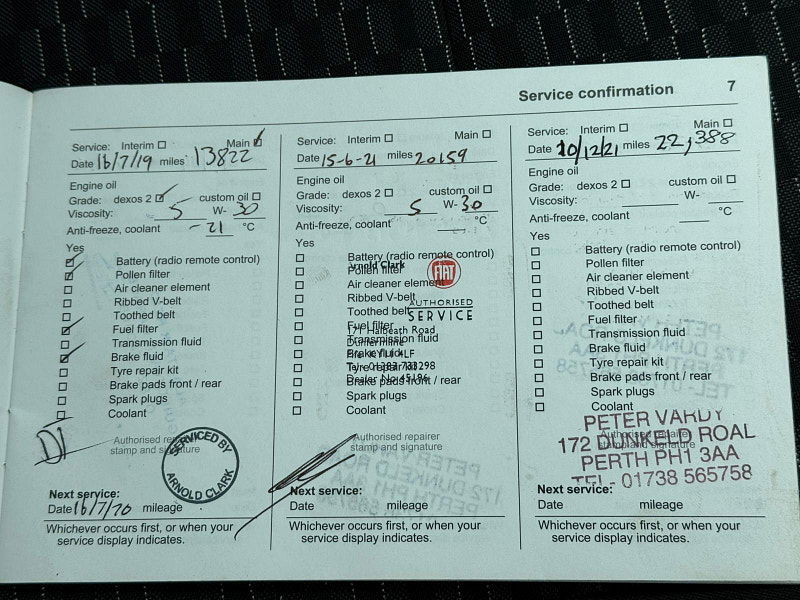 Service confirmation 7
Service: Interim Main
Date 16/7/19 miles 13822
Engine oil
Grade: dexos 2 custom oil
Viscosity: 5 W- 30
Anti-freeze, coolant -21 °C
Yes
Battery (radio remote control)
Pollen filter
Air cleaner element
Ribbed V-belt
Toothed belt
Fuel filter
Transmission fluid
Brake fluid
Tyre repair kit
Brake pads front / rear
Spark plugs
Coolant
Authorised repairer
stamp and signature
SERVICED BY
ARNOLD CLARK
Next service:
Date 16/7/20 mileage
Whichever occurs first, or when your
service display indicates.
Service: Interim Main
Date 15-6-21 miles 20159
Engine oil
Grade: dexos 2 custom oil
Viscosity: 5 W- 30
Anti-freeze, coolant °C
Yes
Battery (radio remote control)
Arnold Clark
Pollen filter
FIAT
Air cleaner element
Ribbed V-belt
AUTHORISED
Toothed belt
SERVICE
Fuel filter
171 Halbeath Road
Transmission fluid
Dunfermline
Brake fluid
Fife KY11 4LF
Tyre repair kit
Tel: 01383 733298
Brake pads front / rear
Dealer No
Spark plugs
Coolant
Authorised repairer
stamp and signature
Next service:
Date mileage
Whichever occurs first, or when your
service display indicates.
Service: Interim Main
Date 10/12/21 miles 22,388
Engine oil
Grade: dexos 2 custom oil
Viscosity: W-
Anti-freeze, coolant °C
Yes
Battery (radio remote control)
Pollen filter
Air cleaner element
Ribbed V-belt
Toothed belt
Fuel filter
Transmission fluid
Brake fluid
Tyre repair kit
Brake pads front / rear
Spark plugs
Coolant
Authorised repairer
stamp and signature
PETER VARDY
172 DUNKELD ROAL
PERTH PH1 3AA
TEL - 01738 565758
Next service:
Date mileage
Whichever occurs first, or when your
service display indicates.